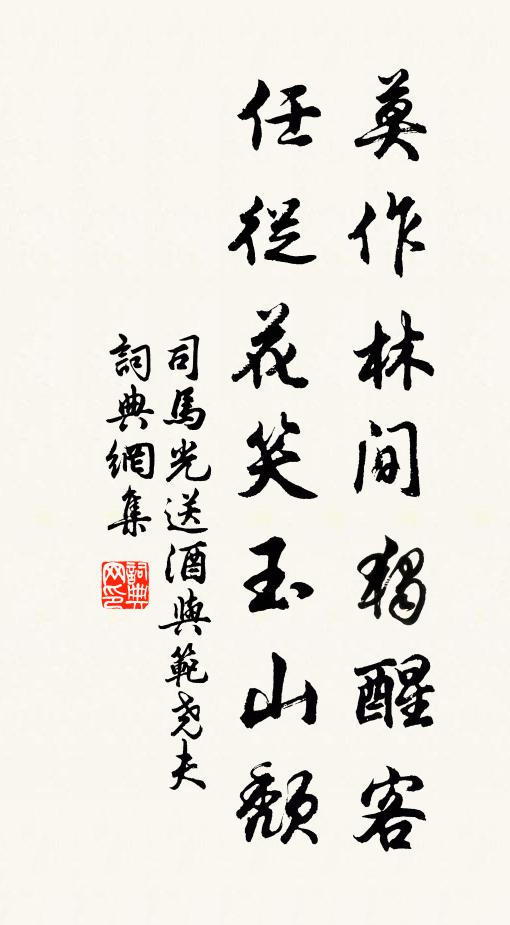 莫作林間獨醒客
任從花笑玉山頹
司馬光送酒與範堯夫
詞典網集
詞典網印